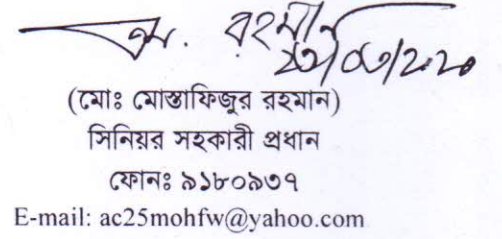 এম. রহমান
(মোঃ মোস্তাফিজুর রহমান)
সিনিয়র সহকারী প্রধান
ফোনঃ ৯১৮০৯৩৭
E-mail: ac25mohfw@yahoo.com